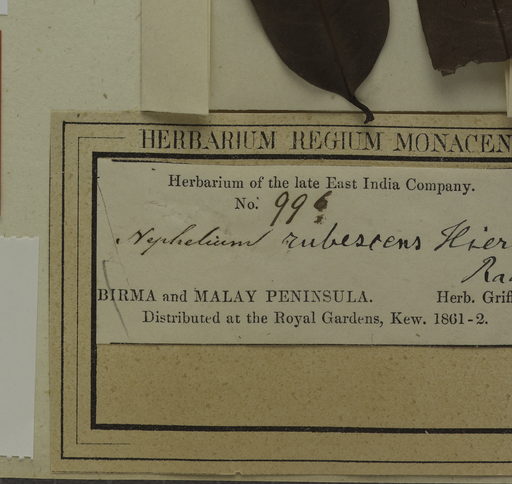 HERBARIUM REGIUM MONACEN
Herbarium of the late East India Company.
No. 996
Nephelium rubescens Hier
BIRMA and MALAY PENINSULA. Herb. Griff
Distributed at the Royal Gardens, Kew. 1861-2.